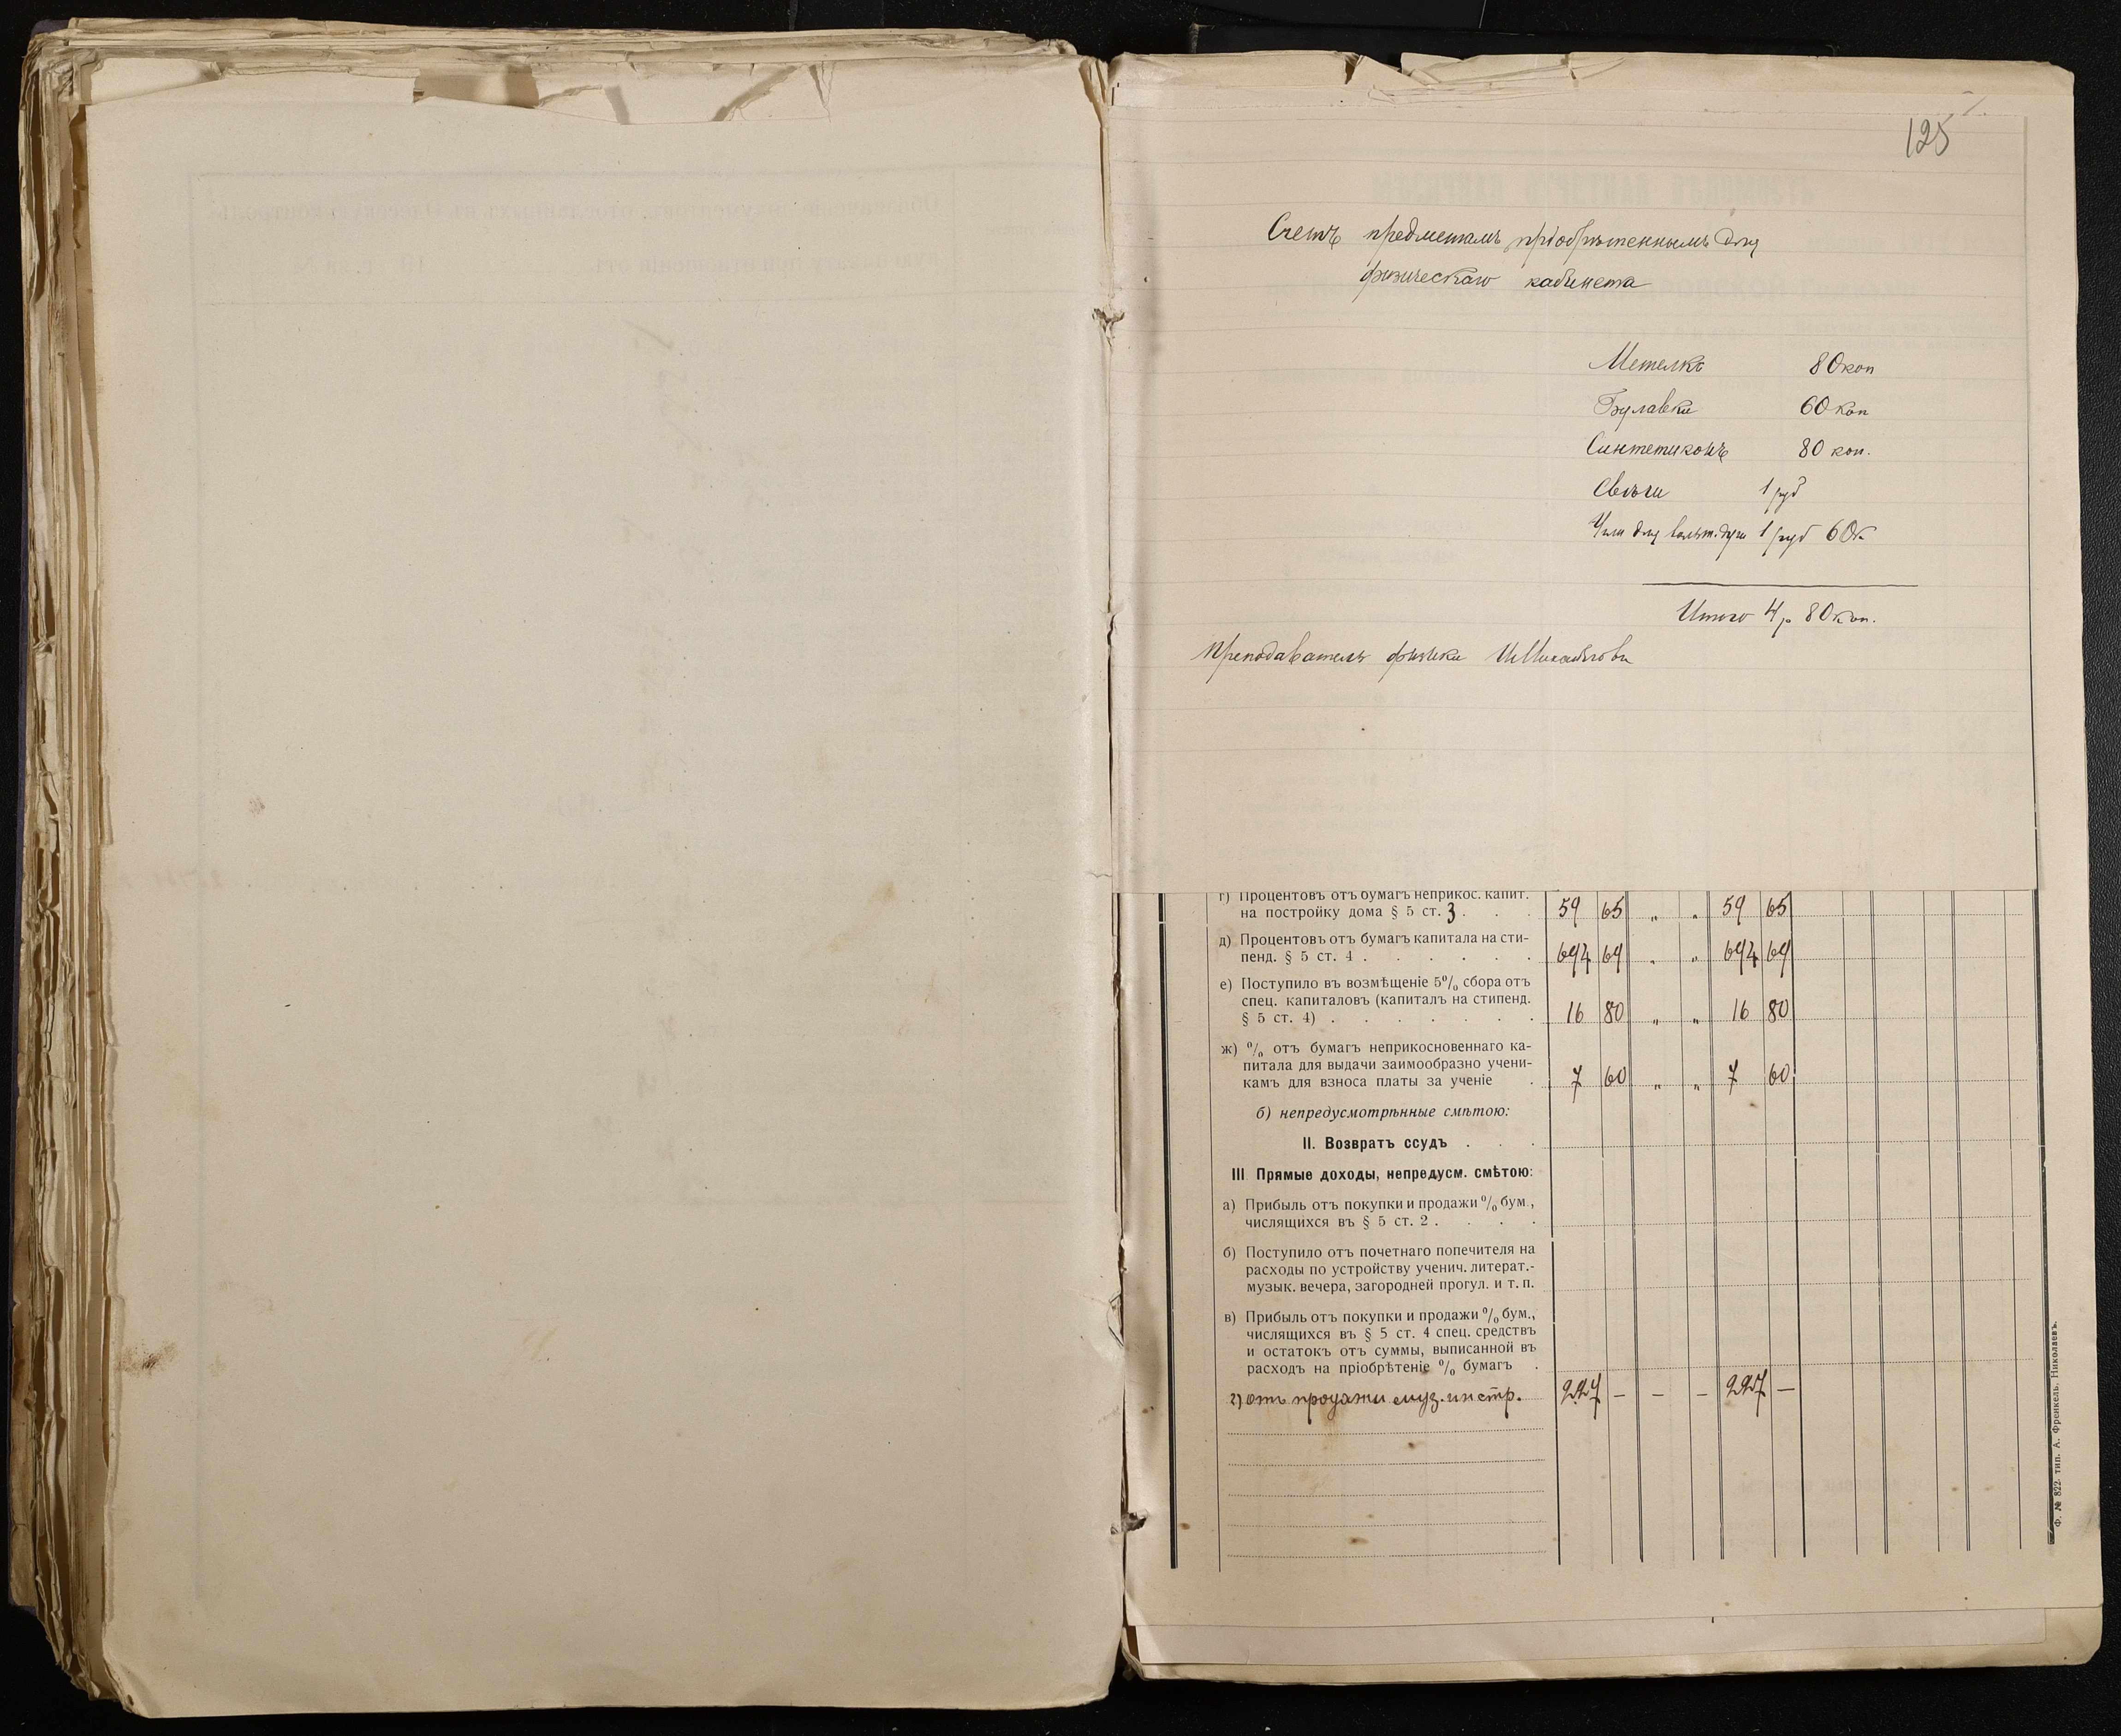 125
Счетъ предметамъ пріобрѣтеннымъ для
физическаго кабинета
Метелкъ 80 коп
Булавки 60 коп
Синтетиконъ 80 коп.
Свѣчи 1 руб
Угли для вольт. дуги 1 руб 60 к
Итого 4 р 80 коп.
Преподаватель физики
г) Процентовъ отъ бумагъ неприкос. капит.
на постройку дома § 5 ст. 3 . . . 59 65 „ „ 59 65
д) Процентовъ отъ бумагъ капитала на сти-
пенд. § 5 ст. 4 . . . . . . 694 69 „ „ 694 69
е) Поступило въ возмѣщеніе 5% сбора отъ
спец. капиталовъ (капиталъ на стипенд.
§ 5 ст. 4) . . . . . . . 16 80 „ „ 16 80
ж) % отъ бумагъ неприкосновеннаго ка-
питала для выдачи заимообразно учени-
камъ для взноса платы за ученіе . 7 60 „ „ 7 60
б) непредусмотрѣнные смѣтою:
II. Возвратъ ссудъ . . .
III Прямые доходы, непредусм. смѣтою:
а) Прибыль отъ покупки и продажи % бум.,
числящихся въ § 5 ст. 2 . . . .
б) Поступило отъ почетнаго попечителя на
расходы по устройству ученич. литерат.-
музык. вечера, загородней прогул. и т. п.
в) Прибыль отъ покупки и продажи % бум.,
числящихся въ § 5 ст. 4 спец. средствъ
и остатокъ отъ суммы, выписанной въ
расходъ на пріобрѣтеніе % бумагъ .
г) отъ продажи муз. инстр. 227 — — — 227 —
Ф. № 822. тип. А. Френкель, Николаевъ.